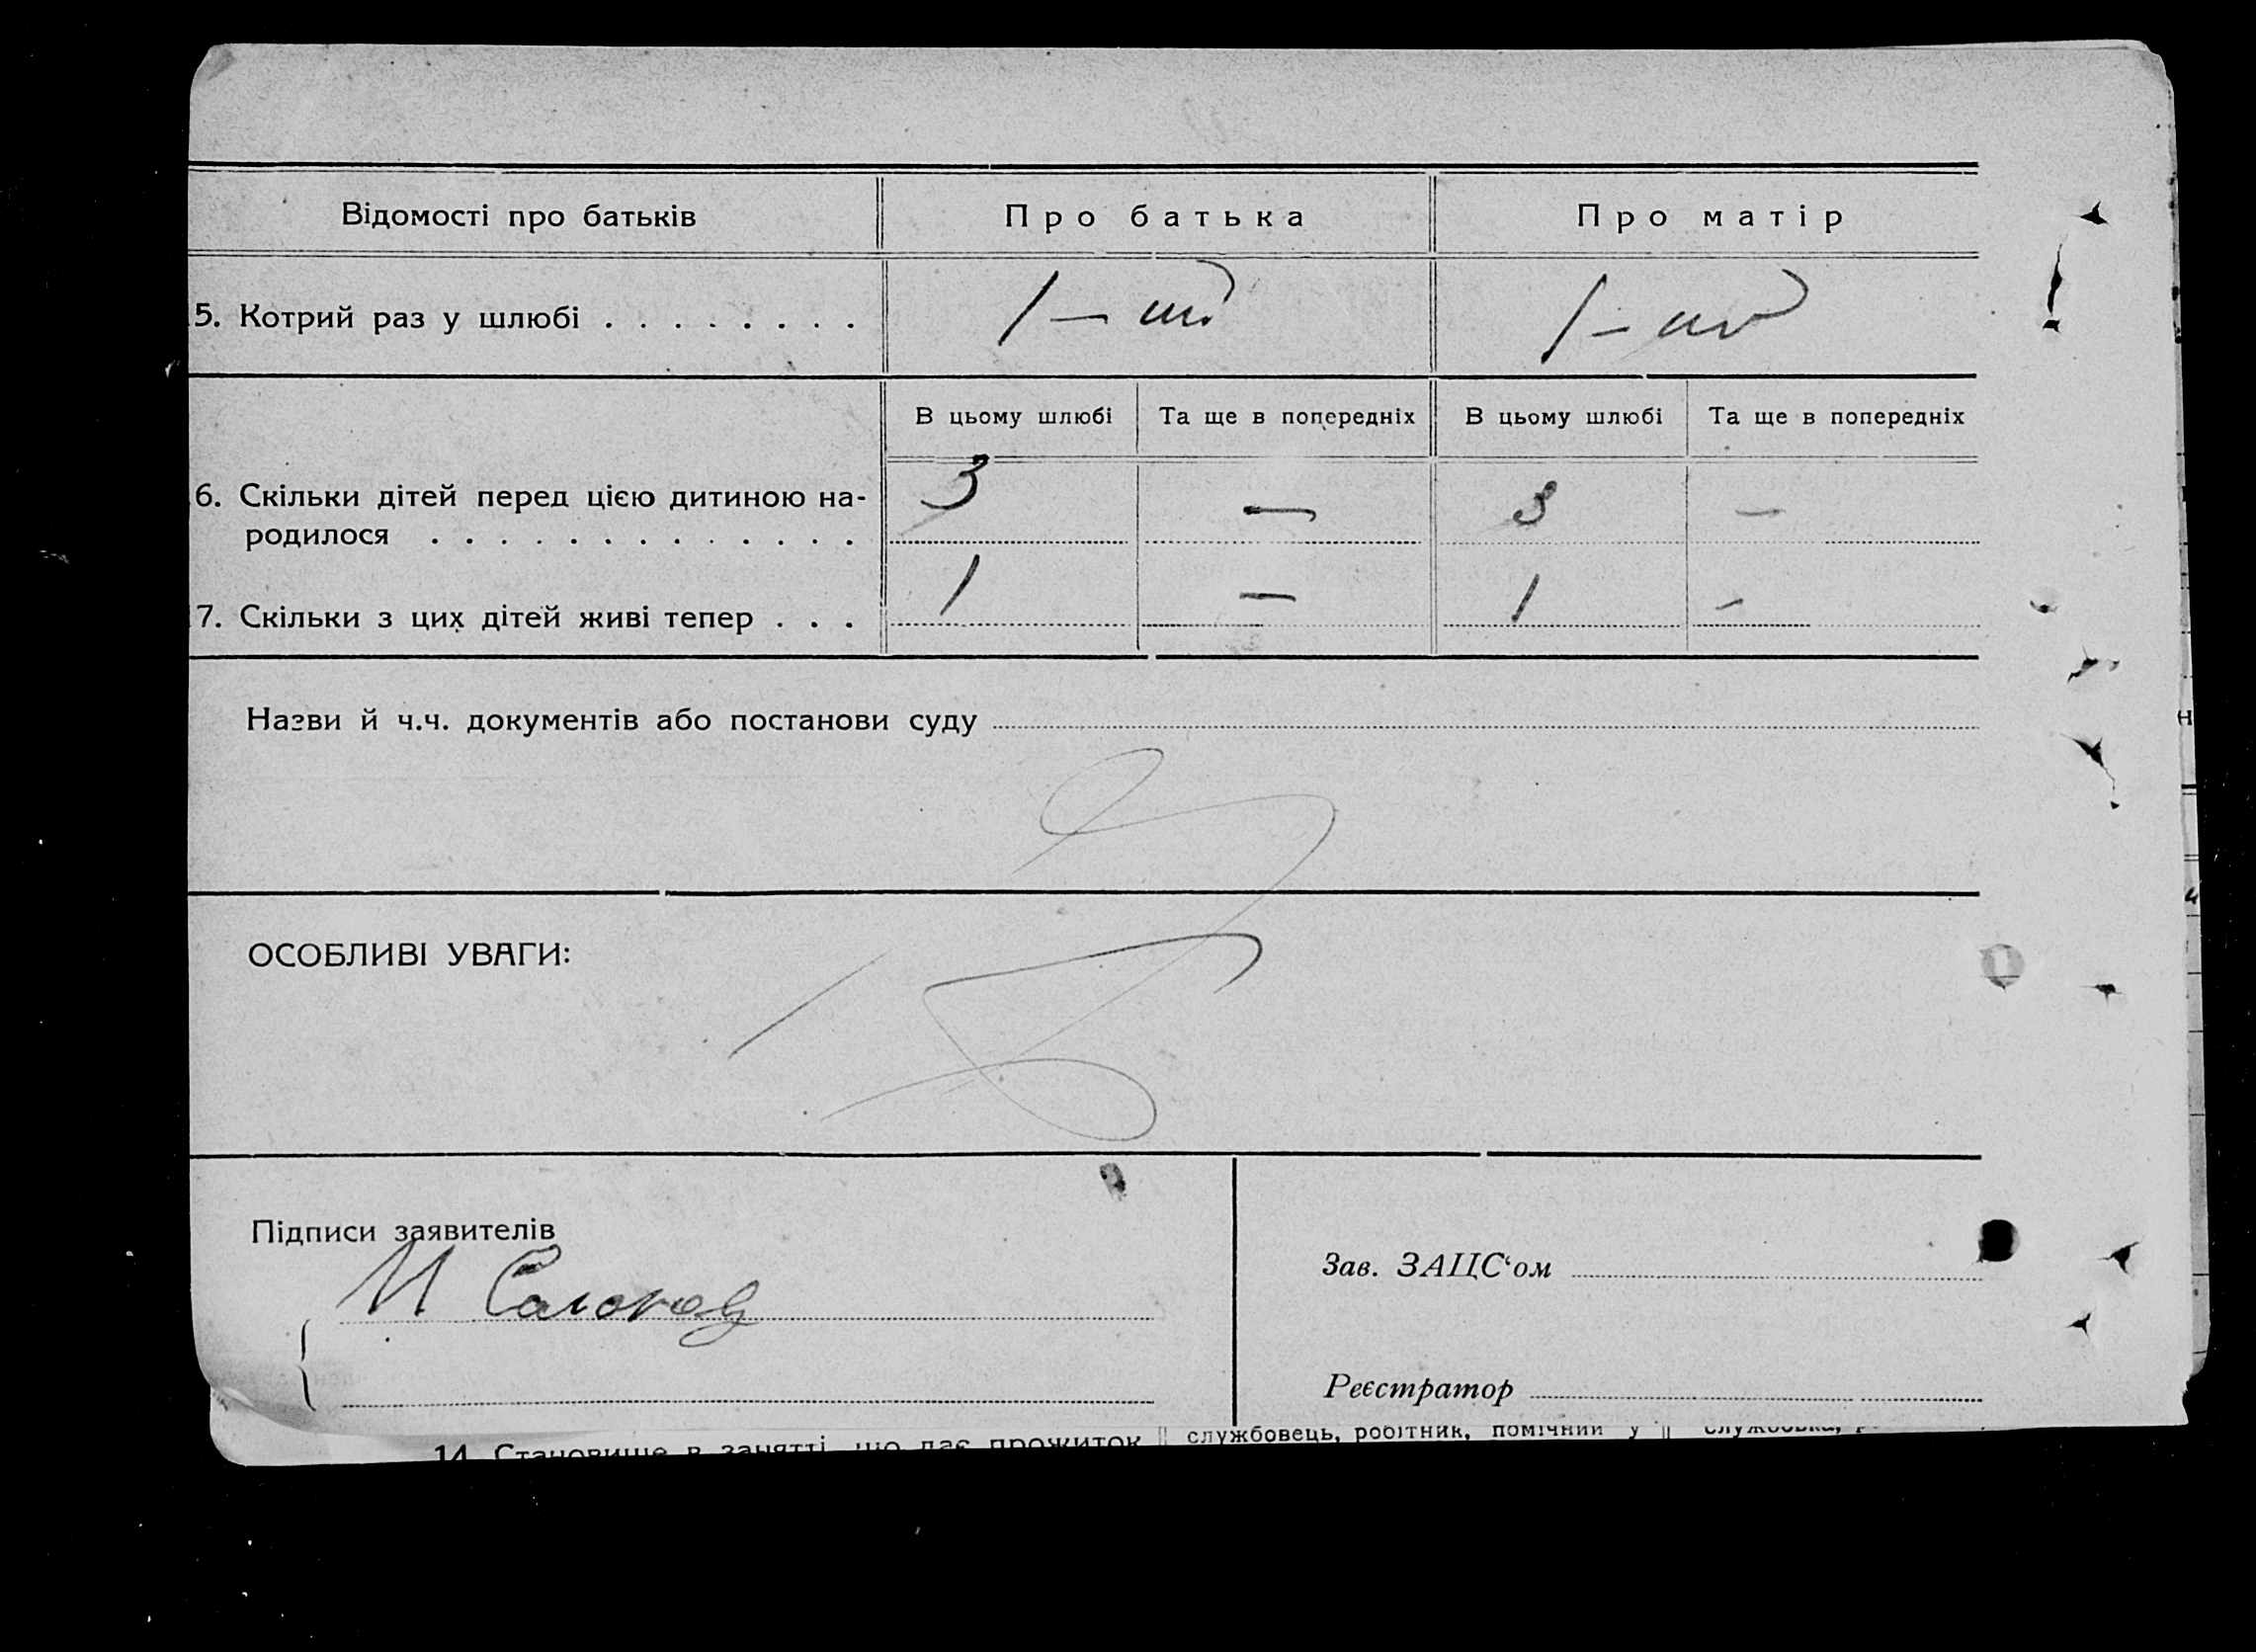 Відомості про батьків Про батька Про матір
5. Котрий раз у шлюбі . . . . . . . . 1 – ий 1 – ий
В цьому шлюбі Та ще в попередніх В цьому шлюбі Та ще в попередніх
6. Скільки дітей перед цією дитиною на-
родилося . . . . . . . . . . . . . 3 — 3 —
7. Скільки з цих дітей живі тепер . . . 1 — 1 —
Назви й ч.ч. документів або постанови суду
ОСОБЛИВІ УВАГИ:
Підписи заявителів
Зав. ЗАЦС‘ом
Реєстратор
14. Становище в занятті, що дає прожиток службовець, робітник, помічний у